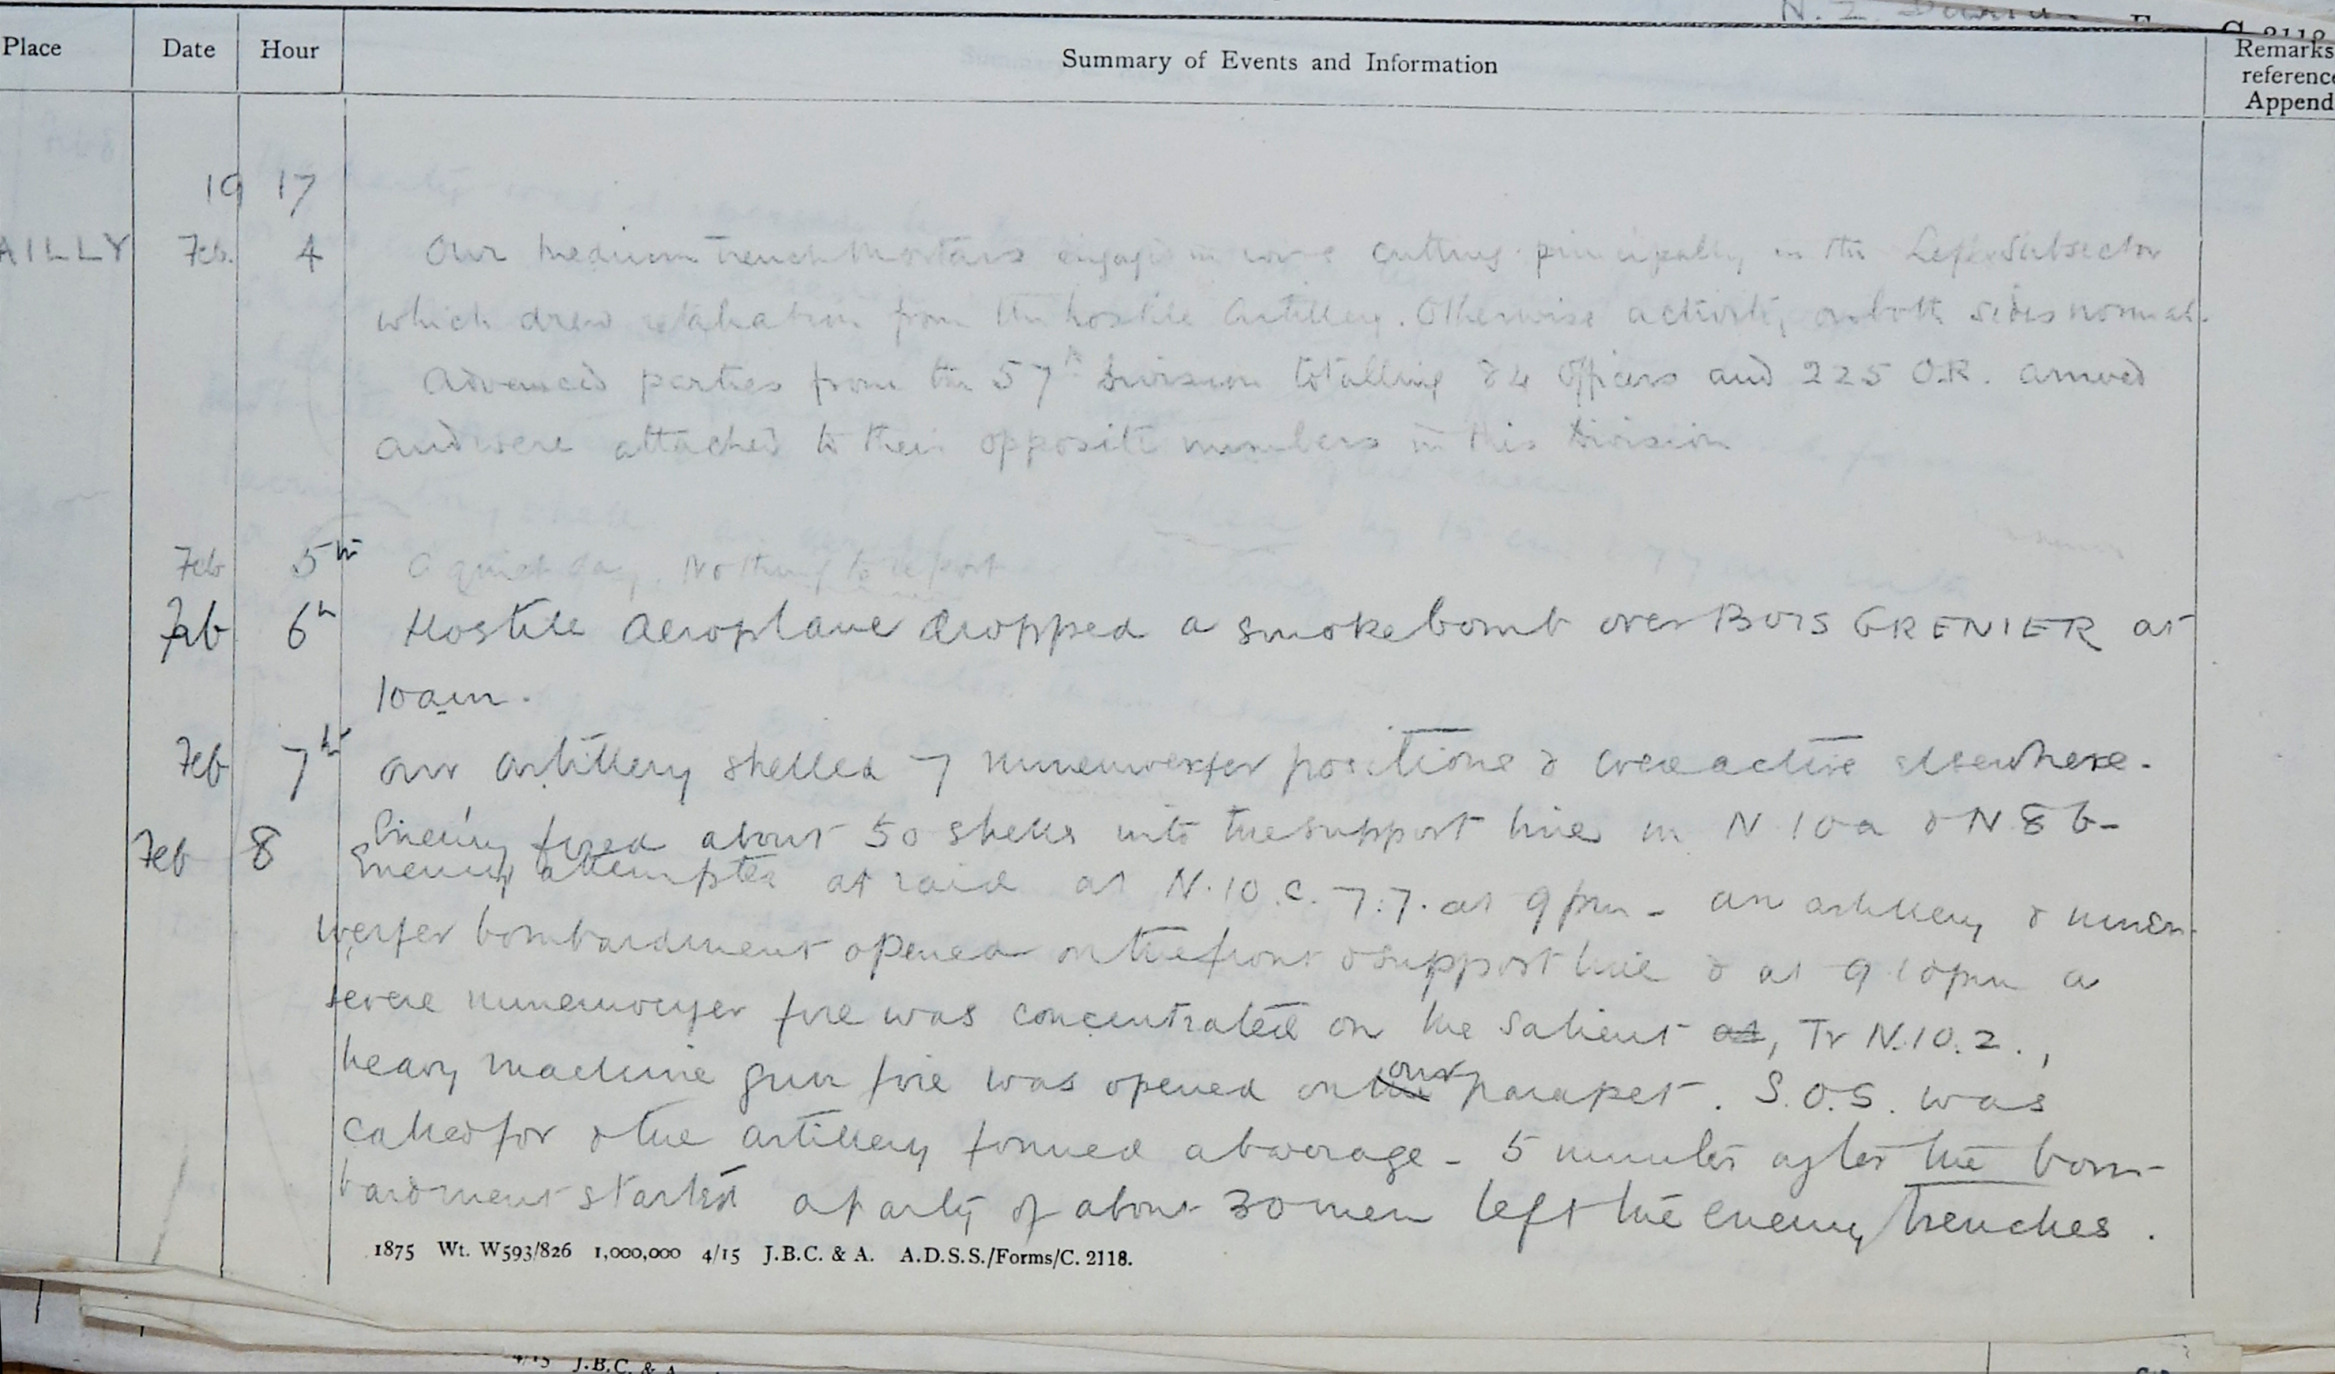 N. Z. Division
Place Date Hour Summary of Events and Information Remarks
reference
Append
19 17
AILLY Feb. 4 Our medium trench mortars engaged in wire cutting principally in the Left Subsector
which drew retaliation from the hostile artillery. Otherwise activity on both sides normal.
Advanced parties from the 57th Division totalling 84 Officers and 225 O.R. arrived
and were attached to their opposite numbers in this Division
Feb 5th A quiet day. Nothing to report
Feb 6th Hostile aeroplane dropped a smoke bomb over BOIS GRENIER at
10am.
Feb 7th Our artillery shelled 7 minenwerfer positions & were active elsewhere.
Enemy fired about 50 shells into the support line in N 10 a & N 8 b -
Feb 8 Enemy attempted at raid at N.10.c.7.7. at 9 pm - an artillery & minen-
werfer bombardment opened on the front & support line & at 9 10 pm a
severe minenwerfer fire was concentrated on the salient at, Tr N.10.2.,
heavy machine gun fire was opened on the our parapet. S.O.S. was
called for & the artillery formed a barrage - 5 minutes after the bom-
bardment started a party of about 30 men left the enemy trenches.
1875 Wt. W593/826 1,000,000 4/15 J.B.C. & A. A.D.S.S./Forms/C. 2118.
4/15 J.B.C. & A.